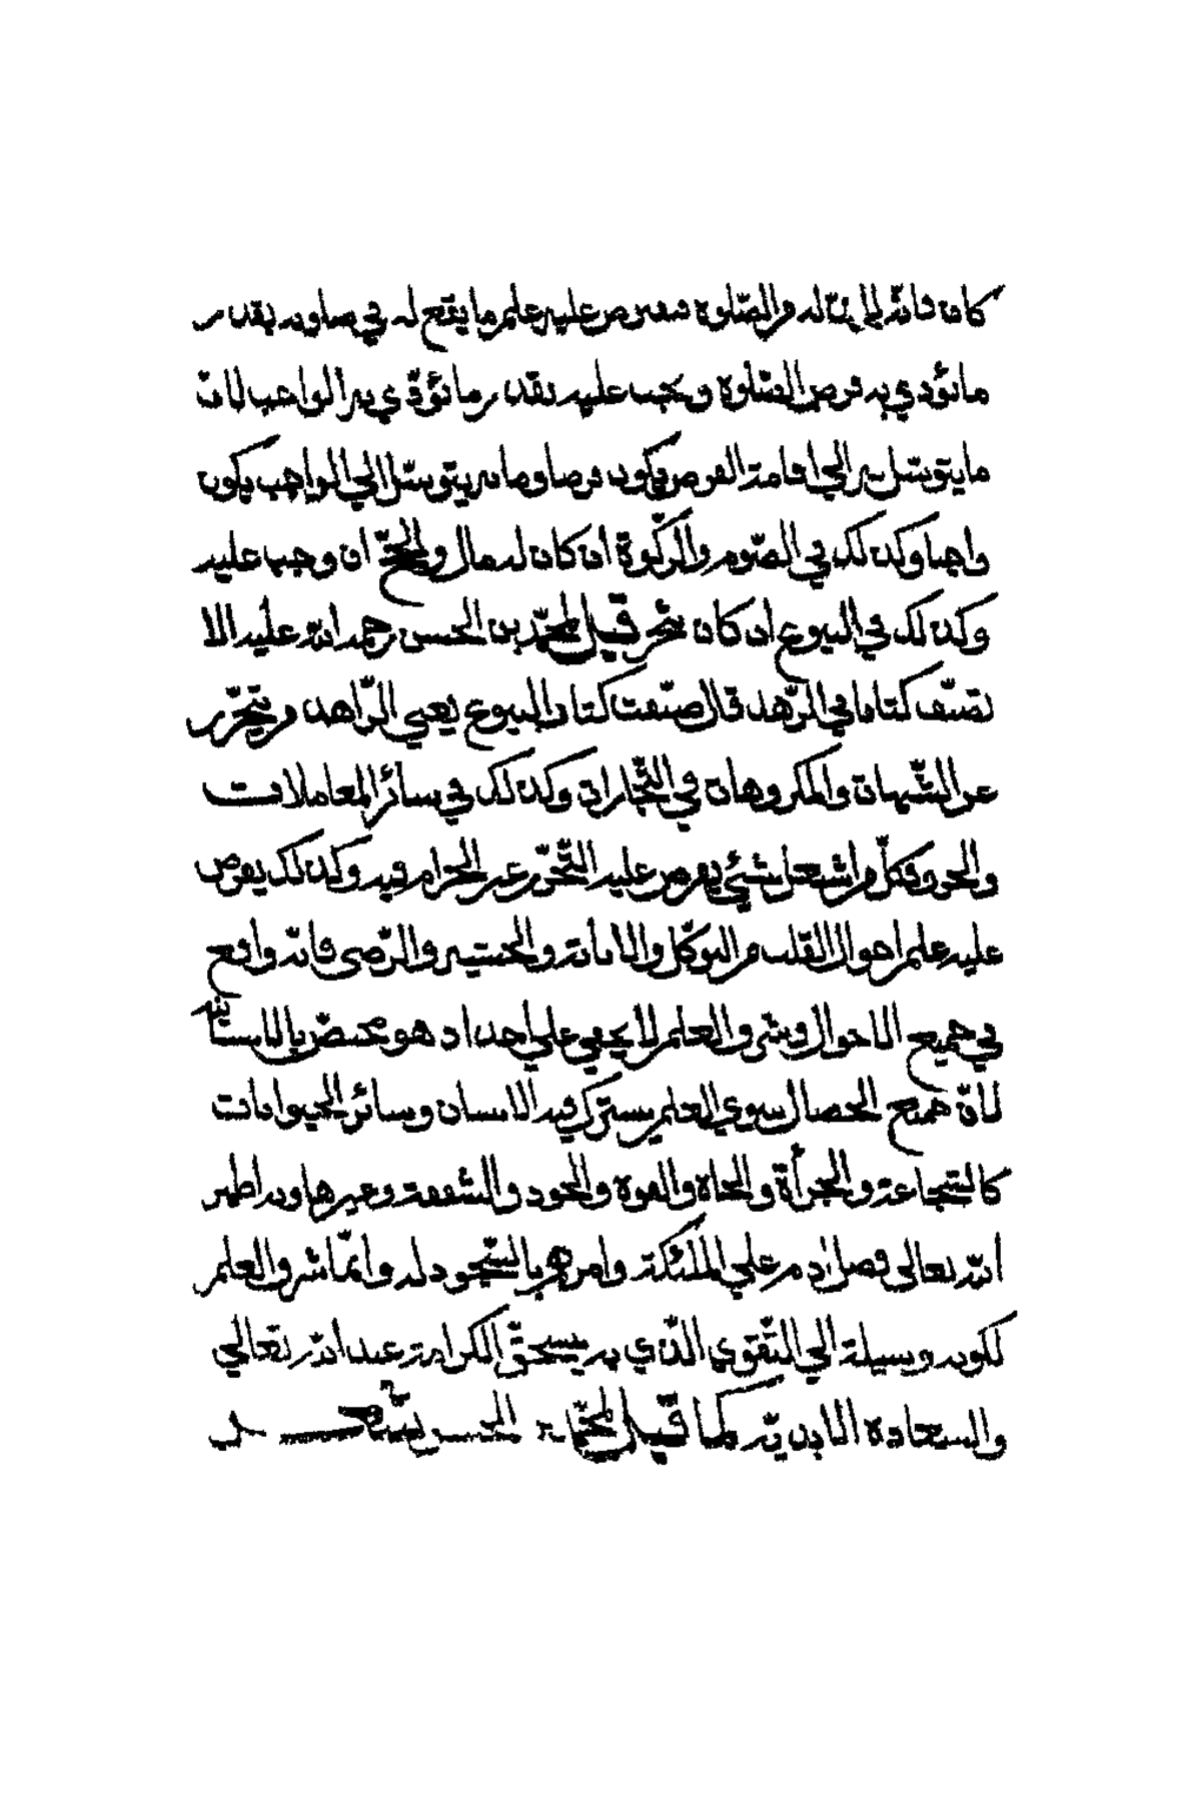 كان فانه لا بدّ له من الصّلوة فيفترض عليه علم ما يقع له في صلوته بقدر
ما يؤدي به فرض الصّلوة ويجب عليه بقدر ما يؤدّي به الواجب لانّ
ما يتوسّل به الى اقامة الفرض يكون فرضا وما به يتوسّل الى الواجب يكون
واجبا وكذلك في الصّوم والزكوة ان كان له مال والحجّ ان وجب عليه
وكذلك في البيوع ان كان يتجر قيل لمحمّد بن الحسن رحمه الله عليه الا
تصنّف كتابا في الزّهد قال صنّفت كتاب البيوع يعني الزّاهد من يتحرّز
عن الشّبهات والمكروهات في التّجارات وكذلك في سائر المعاملات
والحرف فكلّ من اشتغل بشئ يفرض عليه التّحرّز عن الحرام فيه وكذلك يفرض
عليه علم احوال القلب من التوكّل والانابة والخشية والرّضى فانّه واقع
في جميع الاحوال وشرف العلم لا يخفى على احد اذ هو مختصّ بالانسانية
لانّ جميع الخصال سوي العلم يشترك فيه الانسان وسائر الحيوانات
كالشّجاعة والجرأة والقوة والجود والشفقة وغيرها وبه اظهر
الله تعالى فضل ادم على الملئكة وامرهم بالسّجود له وانمّا شرف العلم
لكونه وسيلة الى التّقوى الذّي به يستحقّ الكرامة عند الله تعالى
والسعادة الابديّة كما قيل لمحمّد بن الحسن شعر